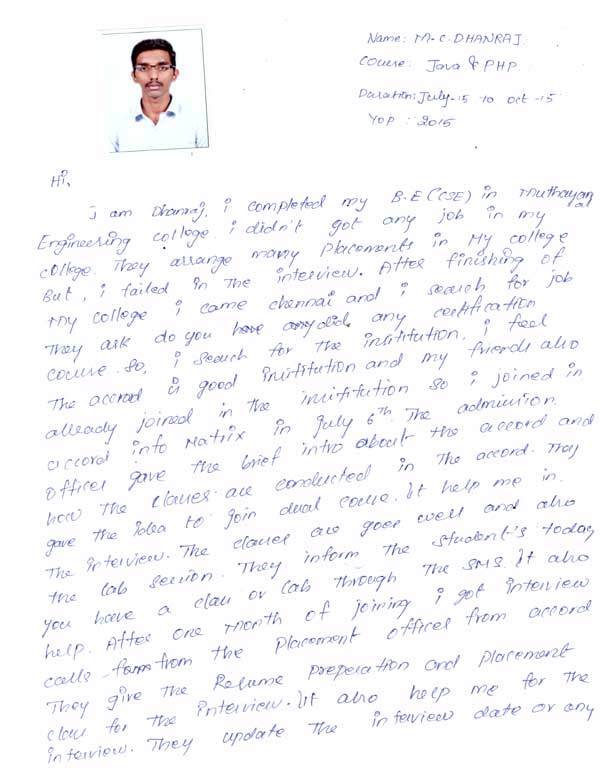 Name: M.C. DHANRAJ
Course: Java & PHP
Duration: July-15 to oct-15
YOP : 2015
Hi,
I am Dhanraj, i completed my B.E (CSE) in Muthayammal
Engineering college. i didn't got any job in my
college. They arrange many Placements in My college
But, i failed in The interview. After finishing of
my college i came chennai and i search for job
They ask do you have any did any certification
course. So, i search for the institution. i feel
The accrod is good institution and my friends also
already joined in the institution so i joined in
accord info Matrix in July 6th. The admission
officer gave the brief intro about the accord and
how the classes are conducted in The accord. They
gave the idea to join dual course. It help me in
The interview. The classes are goes well and also
the lab session. They inform the student's today
you have a class or lab through the SMS. It also
help. After one month of joining i got interview
calls from the Placement officer from accord
They give the Resume preperation and Placement
class for the interview. It also help me for the
interview. They update The interview date or any